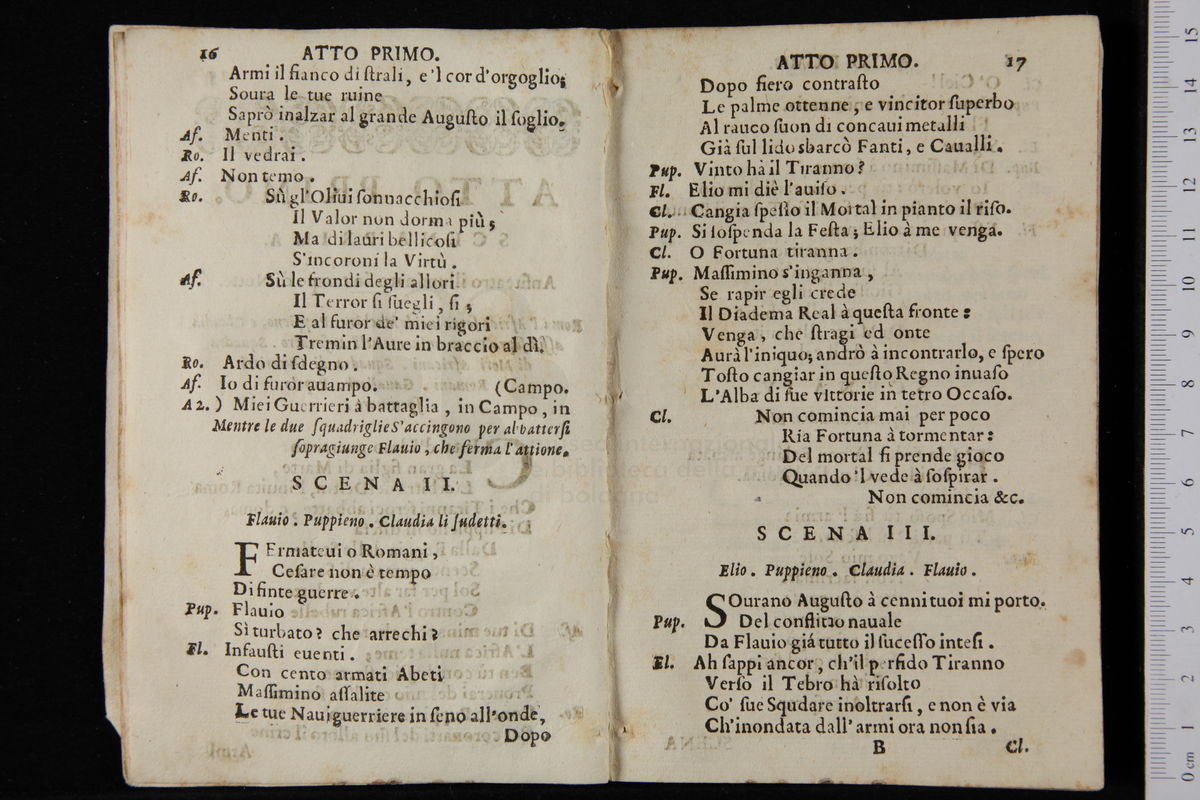 16 ATTO PRIMO.
Armi il fianco di ſtrali, e'l cor d'orgoglio;
Soura le tue ruine
Saprò inalzar al grande Auguſto il ſoglio.
Af. Menti.
Ro. Il vedrai.
Af. Non temo.
Ro. Sù gl'Oliui ſonnacchioſi
Il Valor non dorma più;
Ma di lauri bellicoſi
S'incoroni la Virtù.
Af. Sù le frondi degli allori
Il Terror ſi ſuegli, ſi;
E al furor de' miei rigori
Tremin l'Aure in braccio al dì.
Ro. Ardo di ſdegno.
Af. Io di furor auampo. (Campo.
A 2.) Miei Guerrieri à battaglia, in Campo, in
Mentre le due ſquadriglie S'accingono per abbatterſi
ſopragiunge Flauio, che ferma l'attione.
SCENA II.
Flauio. Puppieno. Claudia li ſudetti.
FErmateui o Romani,
Ceſare non è tempo
Di finte guerre.
Pup. Flauio
Sì turbato? che arrechi?
Fl. Infauſti euenti.
Con cento armati Abeti
Maſſimino aſſalite
Le tue Naui guerriere in ſeno all'onde,
Dopo
ATTO PRIMO. 17
Dopo fiero contraſto
Le palme ottenne, e vincitor ſuperbo
Al rauco ſuon di concaui metalli
Già ſul lido sbarcò Fanti, e Caualli.
Pup. Vinto hà il Tiranno?
Fl. Elio mi diè l'auiſo.
Cl. Cangia ſpeſſo il Mortal in pianto il riſo.
Pup. Si ſoſpenda la Feſta; Elio à me venga.
Cl. O Fortuna tiranna.
Pup. Maſſimino s'inganna,
Se rapir egli crede
Il Diadema Real à queſta fronte:
Venga, che ſtragi ed onte
Aurà l'iniquo; andrò à incontrarlo, e ſpero
Toſto cangiar in queſto Regno inuaſo
L'Alba di ſue vittorie in tetro Occaſo.
Cl. Non comincia mai per poco
Ria Fortuna à tormentar:
Del mortal ſi prende gioco
Quando 'l vede à ſoſpirar.
Non comincia &c.
SCENA III.
Elio. Puppieno. Claudia. Flauio.
SOurano Auguſto à cenni tuoi mi porto.
Pup. Del conflitto nauale
Da Flauio giá tutto il ſuceſſo inteſi.
El. Ah ſappi ancor, ch'il perfido Tiranno
Verſo il Tebro hà riſolto
Co' ſue Squdare inoltrarſi, e non è via
Ch'inondata dall'armi ora non ſia.
B Cl.